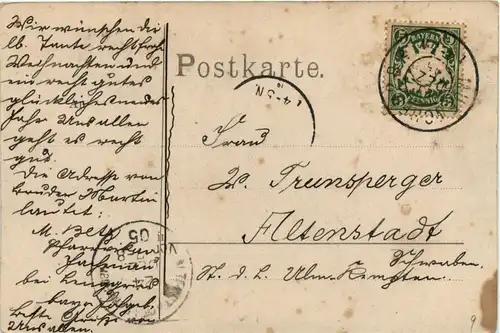 Wir wünschen dir
lb. Tante recht frohe
Weihnachten und
ein recht gutes
glückliches neues
Jahr Uns allen
geht es recht
gut.
Die Adresse von
Bruder Martin
lautet:
M. Betz
bei Lenggries
beste Grüße von
Uns allen.
Postkarte.
BAYERN
5 5
PFENNIG
4-5N
05
Frau
W. Trunsperger
Altenstadt
Schwaben
St. d. L. Ulm-Kempten
9